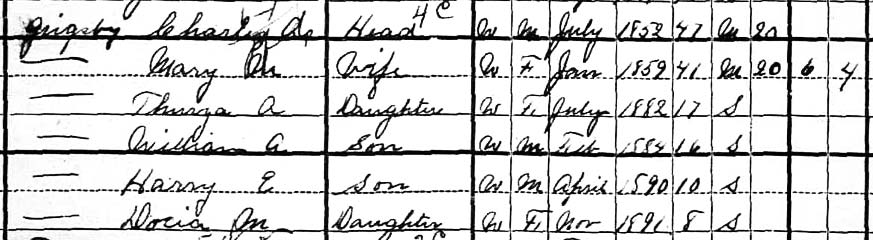 Grigsby Charles A. Head W M July 1852 47 M 20
— Mary M Wife W F Jan 1859 41 M 20 6 4
— Thurza A Daughter W F July 1882 17 S
— William G Son W M Feb 1884 16 S
— Harry E Son W M April 1890 10 S
— Docia M Daughter W F Nov 1891 8 S